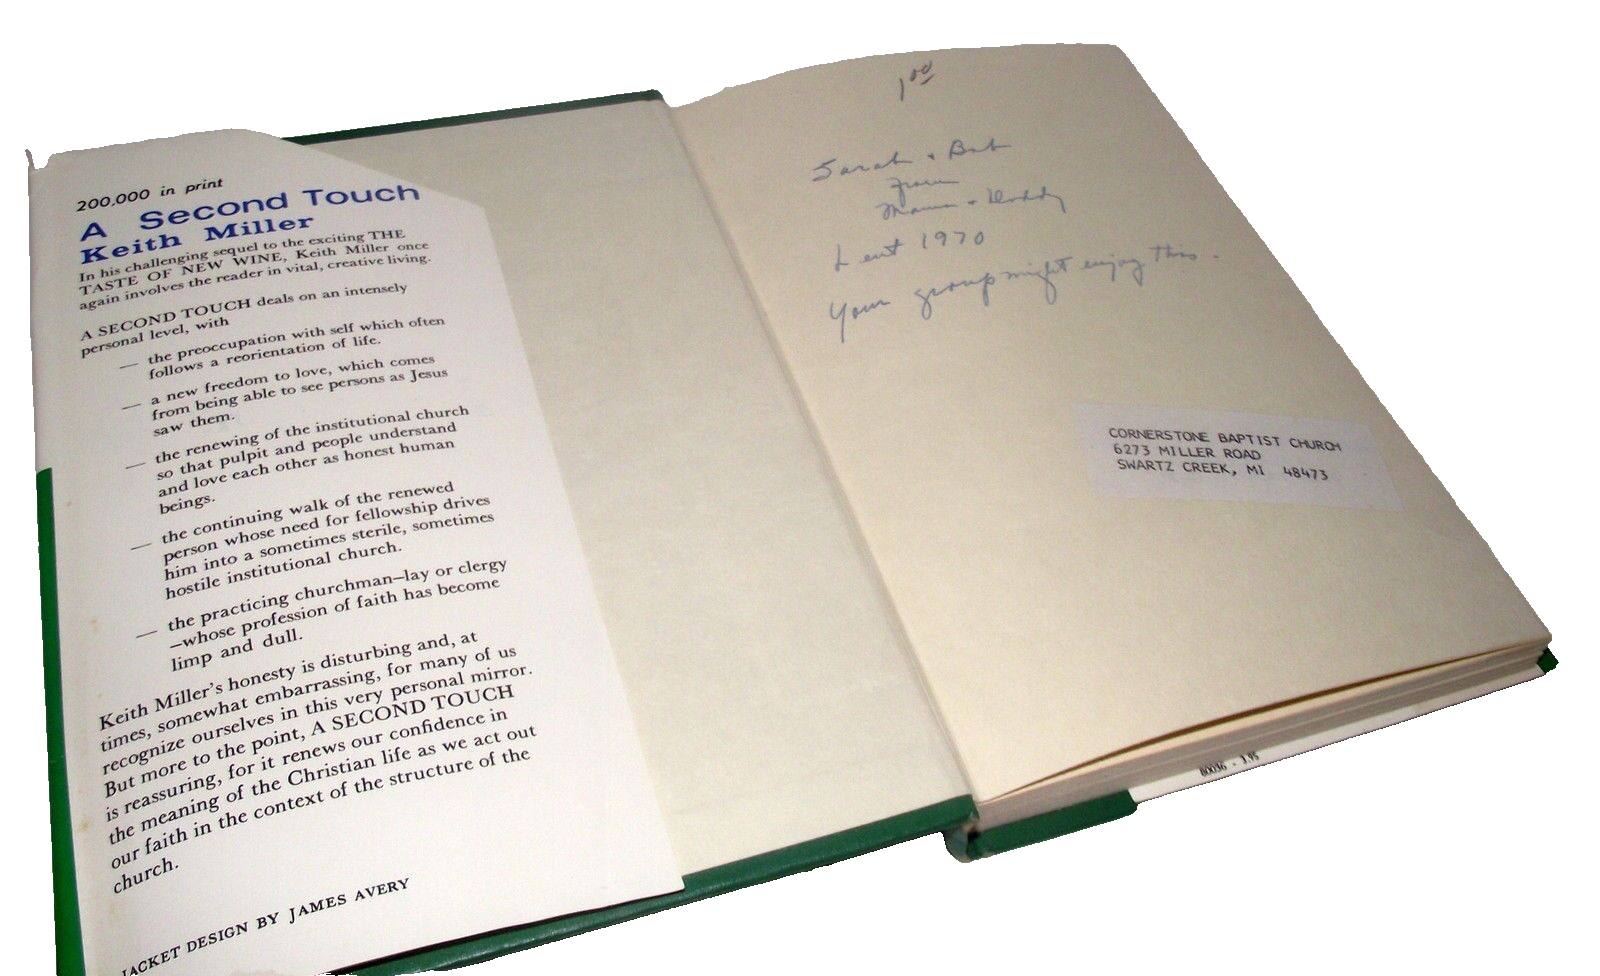 200,000 in print
A Second Touch
Keith Miller
In his challenging sequel to the exciting THE
TASTE OF NEW WINE, Keith Miller once
again involves the reader in vital, creative living.
A SECOND TOUCH deals on an intensely
personal level, with
— the preoccupation with self which often
follows a reorientation of life.
— a new freedom to love, which comes
from being able to see persons as Jesus
saw them.
— the renewing of the institutional church
so that pulpit and people understand
and love each other as honest human
beings.
— the continuing walk of the renewed
person whose need for fellowship drives
him into a sometimes sterile, sometimes
hostile institutional church.
— the practicing churchman—lay or clergy
—whose profession of faith has become
limp and dull.
Keith Miller's honesty is disturbing and, at
times, somewhat embarrassing, for many of us
recognize ourselves in this very personal mirror.
But more to the point, A SECOND TOUCH
is reassuring, for it renews our confidence in
the meaning of the Christian life as we act out
our faith in the context of the structure of the
church.
JACKET DESIGN BY JAMES AVERY
1.00
Sarah + Bob
from
Mama + Daddy
Lent 1970
Your group might enjoy this.
CORNERSTONE BAPTIST CHURCH
6273 MILLER ROAD
SWARTZ CREEK, MI 48473
80036 - 3.95